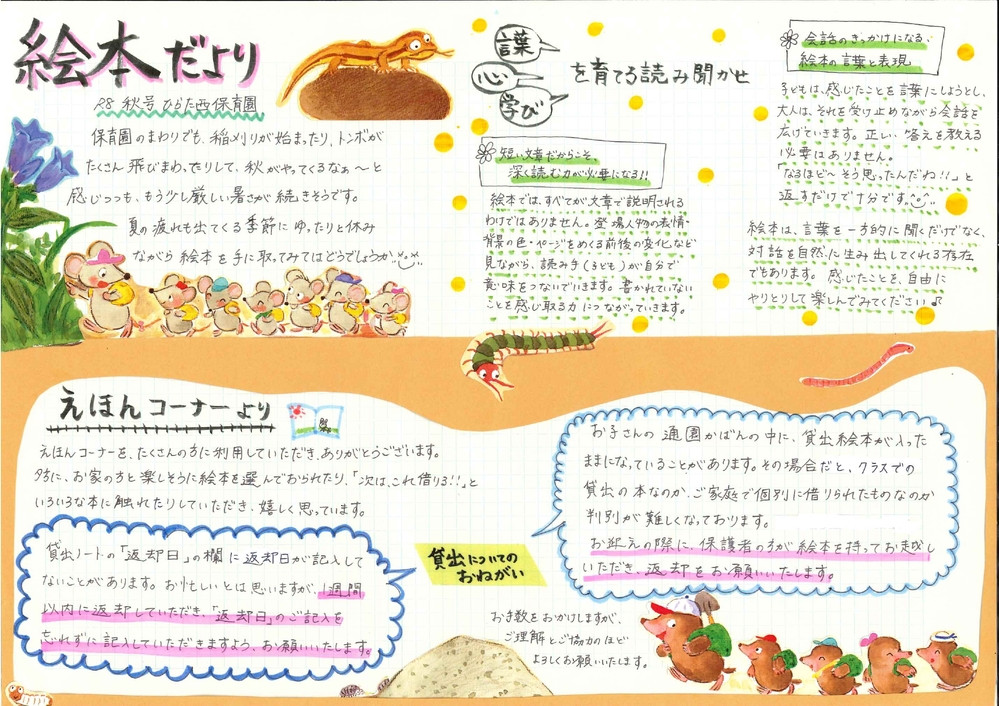 絵本だより
R8 秋号 ひらた西保育園
保育園のまわりでも、稲刈りが始まったり、トンボが
たくさん飛びまわったりして、秋がやってくるなぁ〜と
感じつつも、もう少し厳しい暑さが続きそうです。
夏の疲れも出てくる季節にゆったりと休み
ながら絵本を手に取ってみてはどうでしょうか
言葉
心
学び
を育てる読み聞かせ
短い文章だからこそ、
深く読む力が必要になる!!
絵本では、すべてが文章で説明される
わけではありません。登場人物の表情・
背景の色・ページをめくる前後の変化など
見ながら、読み手(子ども)が自分で
意味をつないでいきます。書かれていない
ことを感じ取る力につながっていきます。
会話のきっかけになる、
絵本の言葉と表現
子どもは、感じたことを言葉にしようとし、
大人は、それを受け止めながら会話を
広げていきます。正しい答えを教える
必要はありません。
「なるほど〜そう思ったんだね!!」と
返すだけで十分です。
絵本は、言葉を一方的に聞くだけでなく、
対話を自然に生み出してくれる存在
でもあります。感じたことを、自由に
やりとりして楽しんでみてください♪
えほんコーナーより
えほんコーナーを、たくさんの方に利用していただき、ありがとうございます。
夕方に、お家の方と楽しそうに絵本を選んでおられたり、「次は、これ借りる!!」と
いろいろな本に触れたりしていただき、嬉しく思っています。
貸出ノートの「返却日」の欄に返却日が記入して
ないことがあります。お忙しいとは思いますが、1週間
以内に返却していただき、「返却日」のご記入を
忘れずに記入していただきますよう、お願いいたします。
貸出についての
おねがい
お子さんの通園かばんの中に、貸出絵本が入った
ままになっていることがあります。その場合だと、クラスでの
貸出の本なのか、ご家庭で個別に借りられたものなのか
判別が難しくなっております。
お迎えの際に、保護者の方が絵本を持ってお越し
いただき、返却をお願いいたします。
お手数をおかけしますが、
ご理解とご協力のほど
よろしくお願いいたします。